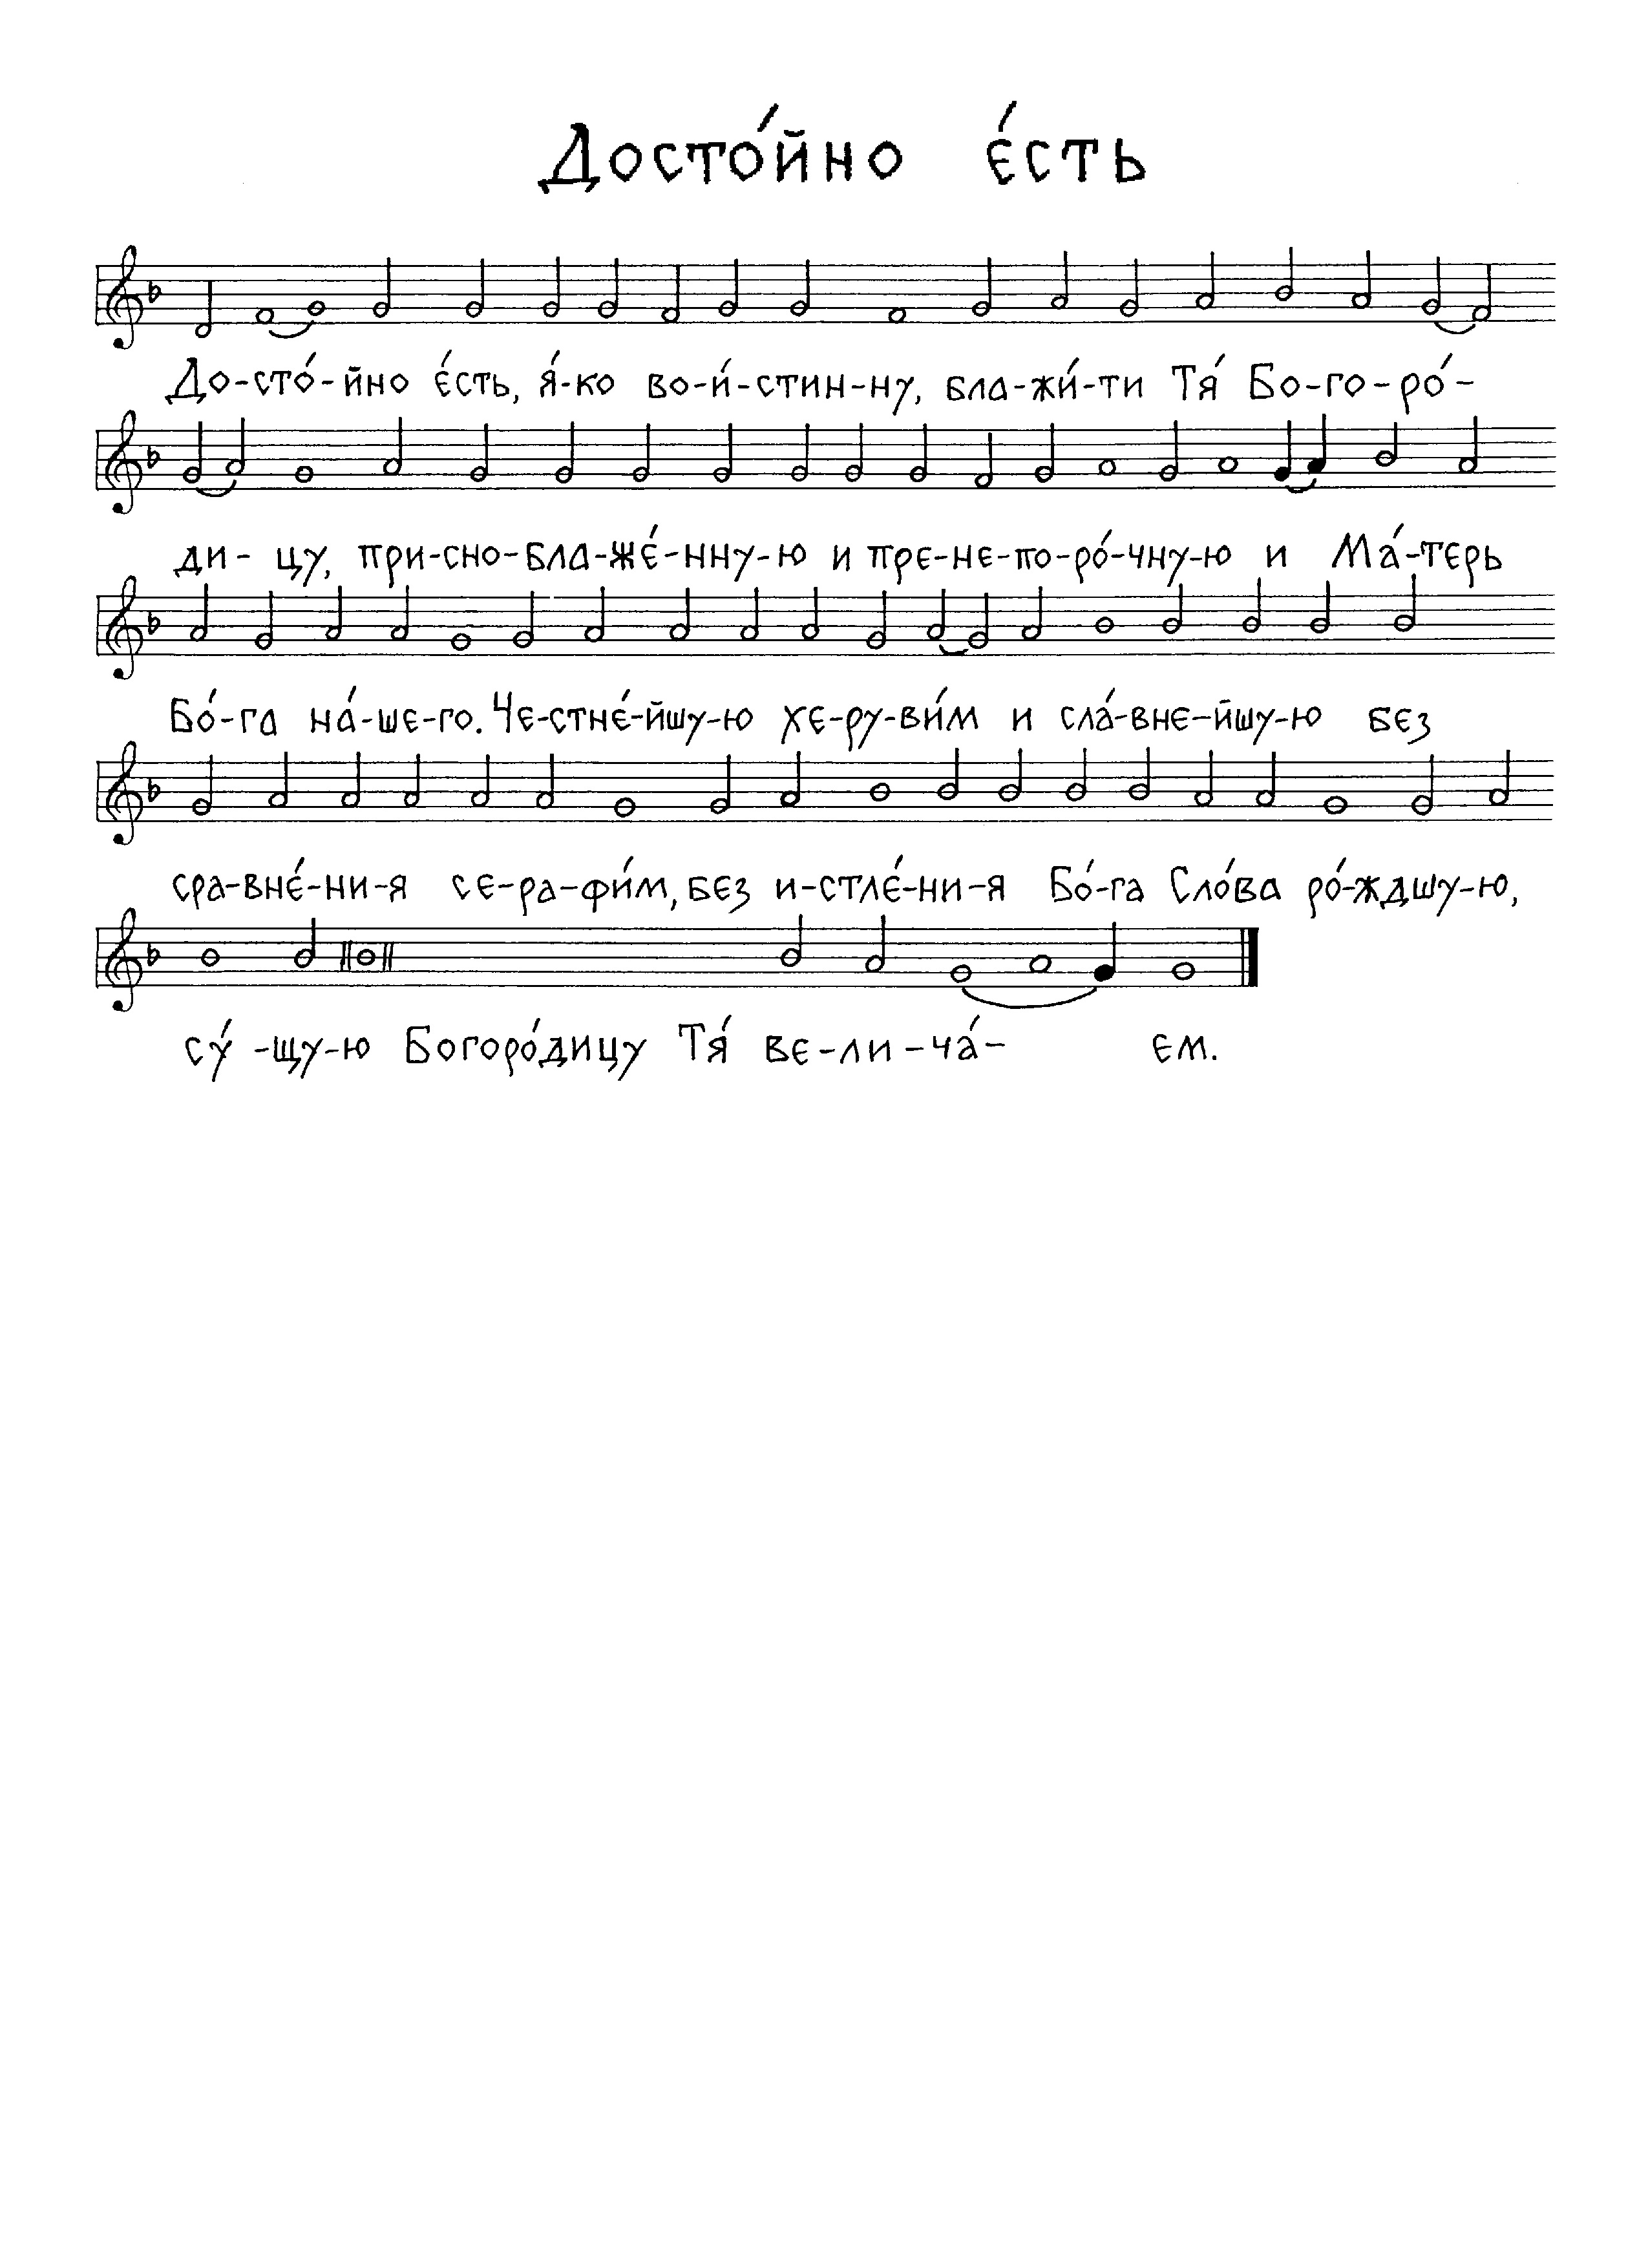 Досто́йно е́сть
До-сто́-йно е́сть, я́-ко во-и́-стин-ну, бла-жи́-ти Тя́ Бо-го-ро́-
ди- цу, при-сно-бла-же́-нну-ю и пре-не-по-ро́-чну-ю и Ма́-терь
Бо́-га на́-ше-го. Че-стне́-йшу-ю хе-ру-ви́м и сла́-вне-йшу-ю без
сра-вне́-ни-я се-ра-фи́м, без и-стле́-ни-я Бо́-га Сло́ва ро́-ждшу-ю,
су́-щу-ю Богоро́дицу Тя́ ве-ли-ча́- ем.